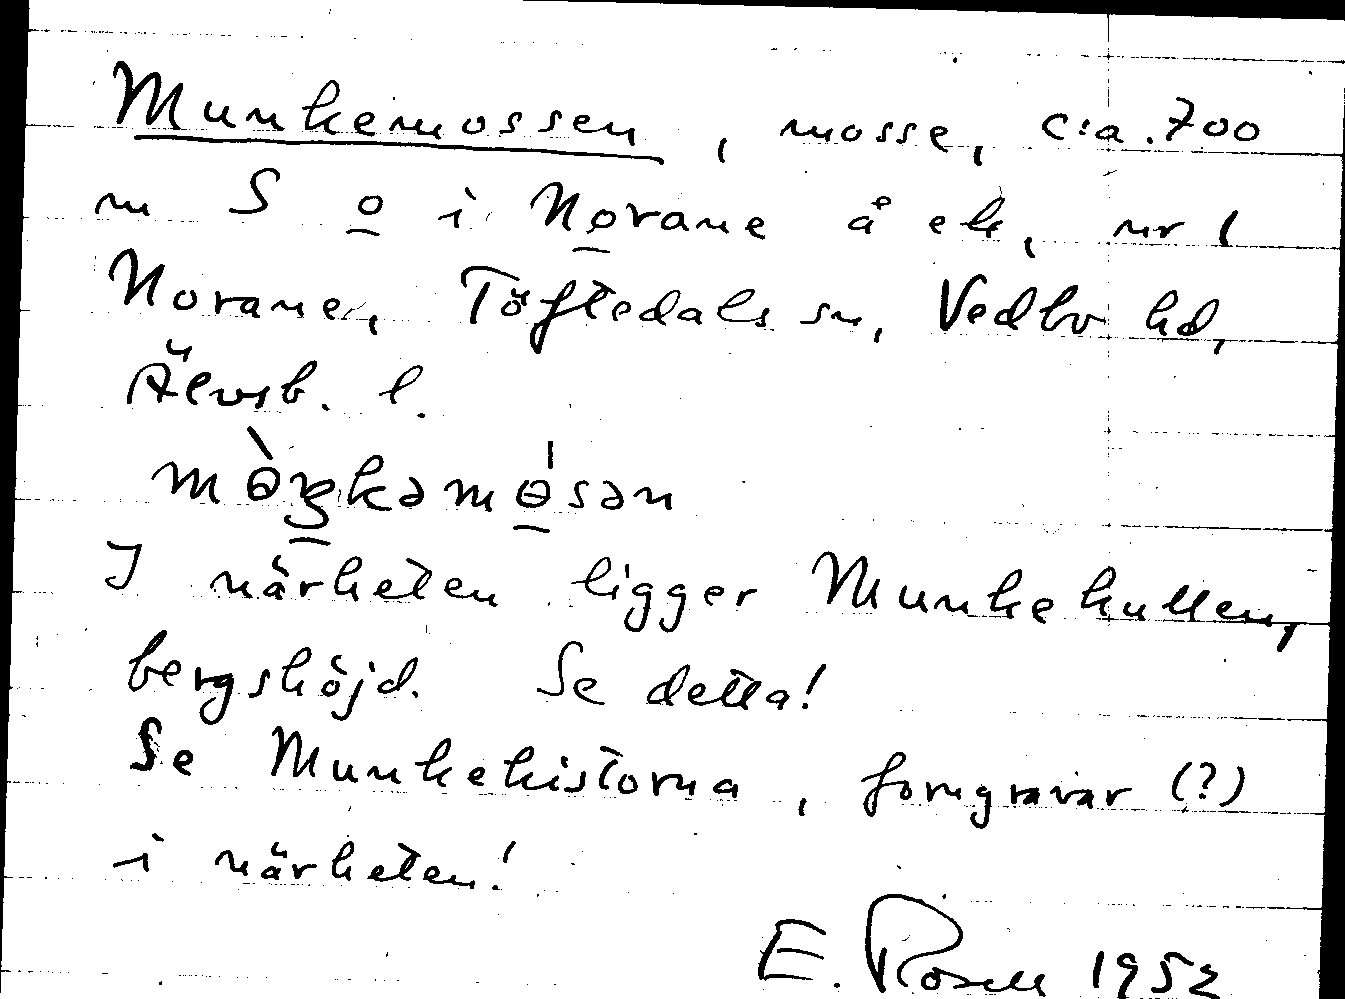 Munkemossen, mosse, c:a. 700
m S o̲ i No̲rane å ek, nr 1
Norane, Töftedals sn, Vedbo hd,
Älvsb. l.
I närheten ligger Munkekullen,
bergshöjd. Se detta!
Se Munkekistorna, forngravar (?)
i närheten!
E. Rosell 1952